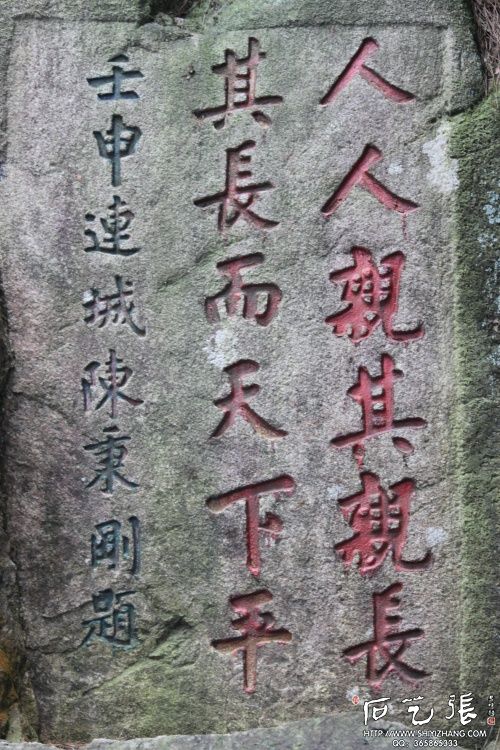 人人親其親長
其長而天下平
壬申連城陳秉剛題
石艺張
HTTP://WWW.SHIYIZHANG.COM
QQ: 365865333